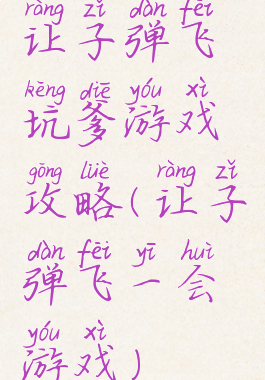 ràng zǐ dàn fēi
让子弹飞
kēng diē yóu xì
坑爹游戏
gōng lüè ràng zǐ
攻略(让子
dàn fēi yī huì
弹飞一会
yóu xì
游戏)